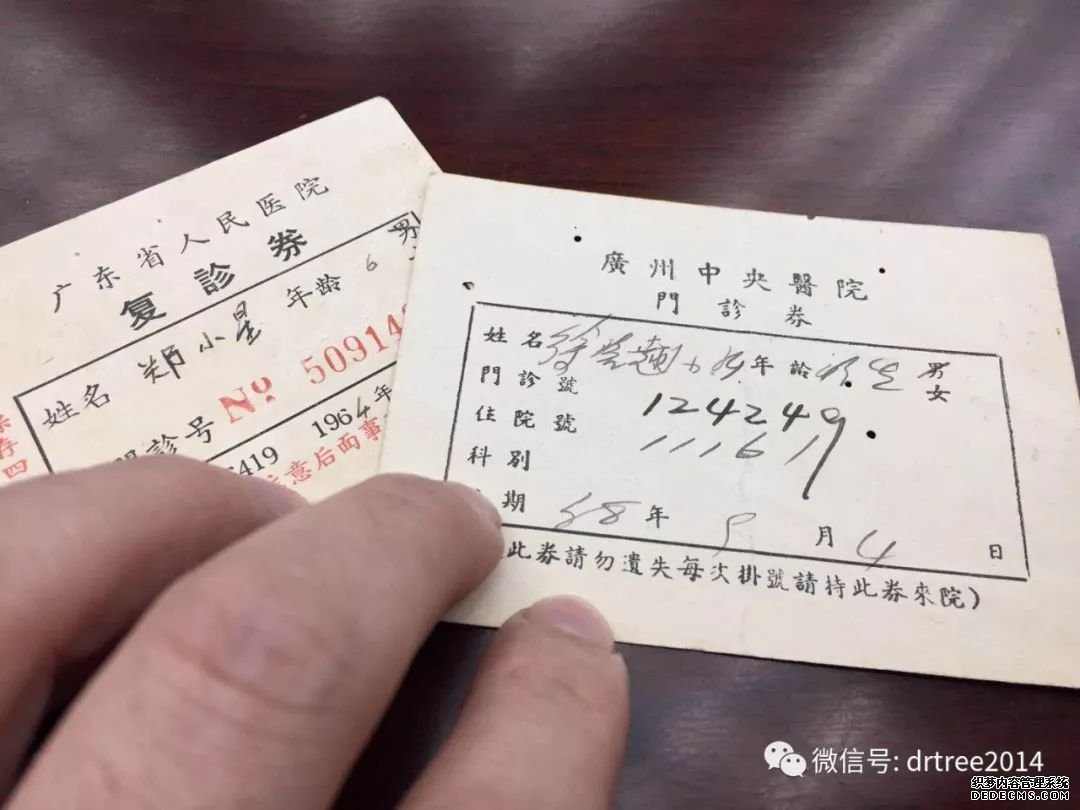 广东省人民医院
复診券
姓名 郑小星 年龄 6 男
診号 No 50914
419 1964年
意后面事
存四
廣州中央醫院
門診券
姓名 年齡 男女
門診號 124249
住院號 111619
科別
期 58年 5月4日
此券請勿遺失每次掛號請持此券來院)
微信号: drtree2014
织梦内容管理系统
DEDECMS.COM